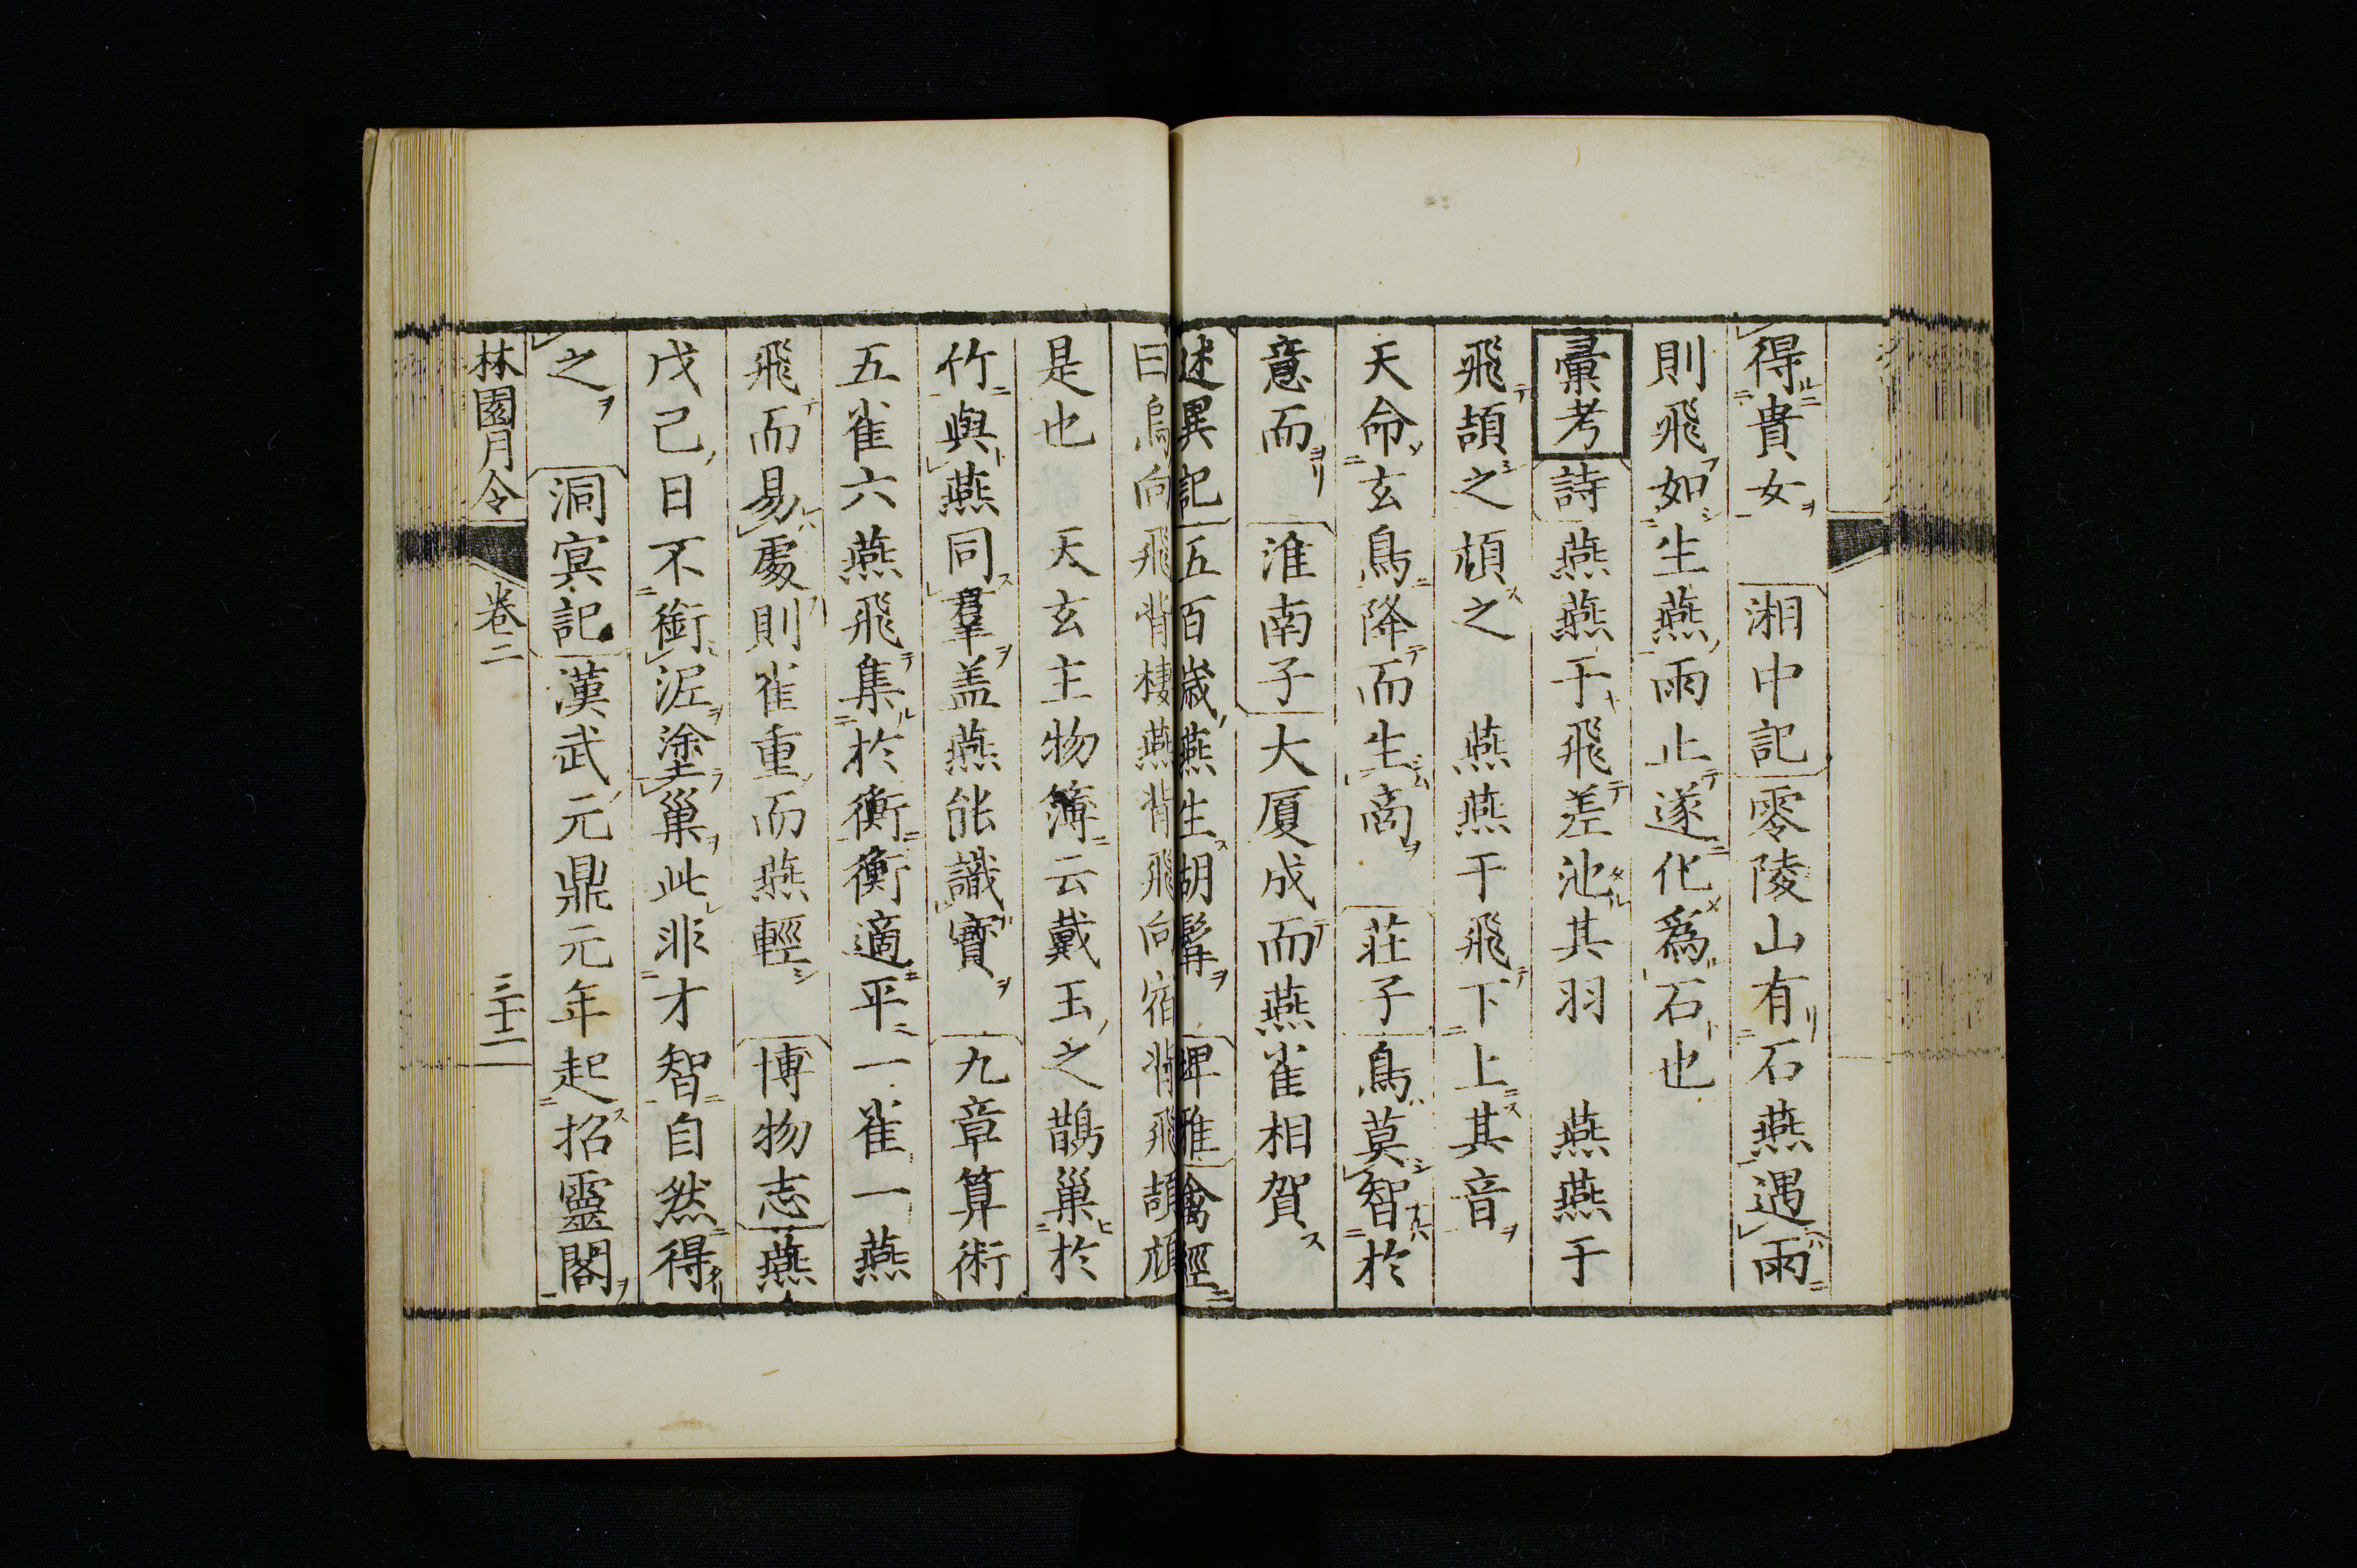 得貴女　湘中記零陵山有石燕遇雨
則飛如生燕雨止遂化爲石也
彙考詩燕燕于飛差池其羽　燕燕于
飛頡之頏之　燕燕于飛下上其音
天命玄鳥降而生商　莊子鳥莫智於
意而　淮南子大厦成而燕雀相賀
述異記五百歲燕生胡髯　埤雅禽經
曰鳥向飛背棲燕背飛向宿背飛頡頏
是也　天玄主物簿云戴玉之鵲巢於
竹與燕同羣盖燕能識寶　九章算術
五雀六燕飛集於衡衡適平一雀一燕
飛而易處則雀重而燕輕　博物志燕
戊己日不銜泥塗巢此非才智自然得
之　洞冥記漢武元鼎元年起招靈閣
林園月令　卷二　三十二